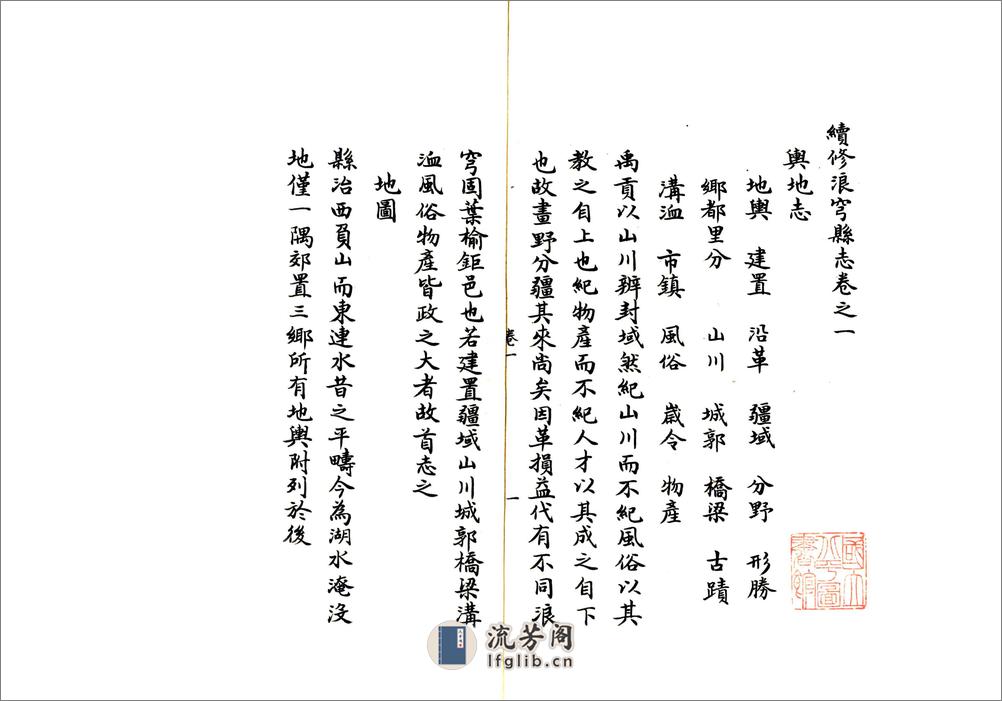 續修浪穹縣志卷之一
輿地志
地輿 建置 沿革 疆域 分野 形勝
鄉都里分 山川 城郭 橋梁 古蹟
溝洫 市鎮 風俗 歲令 物產
禹貢以山川辨封域然紀山川而不紀風俗以其
教之自上也紀物產而不紀人才以其成之自下
也故畫野分疆其來尚矣因革損益代有不同浪
卷一
一
穹固葉榆鉅邑也若建置疆域山川城郭橋梁溝
洫風俗物產皆政之大者故首志之
地圖
縣治西負山而東連水昔之平疇今為湖水淹沒
地僅一隅郊置三鄉所有地輿附列於後
國立北平圖書館
流芳阁
lfglib.cn